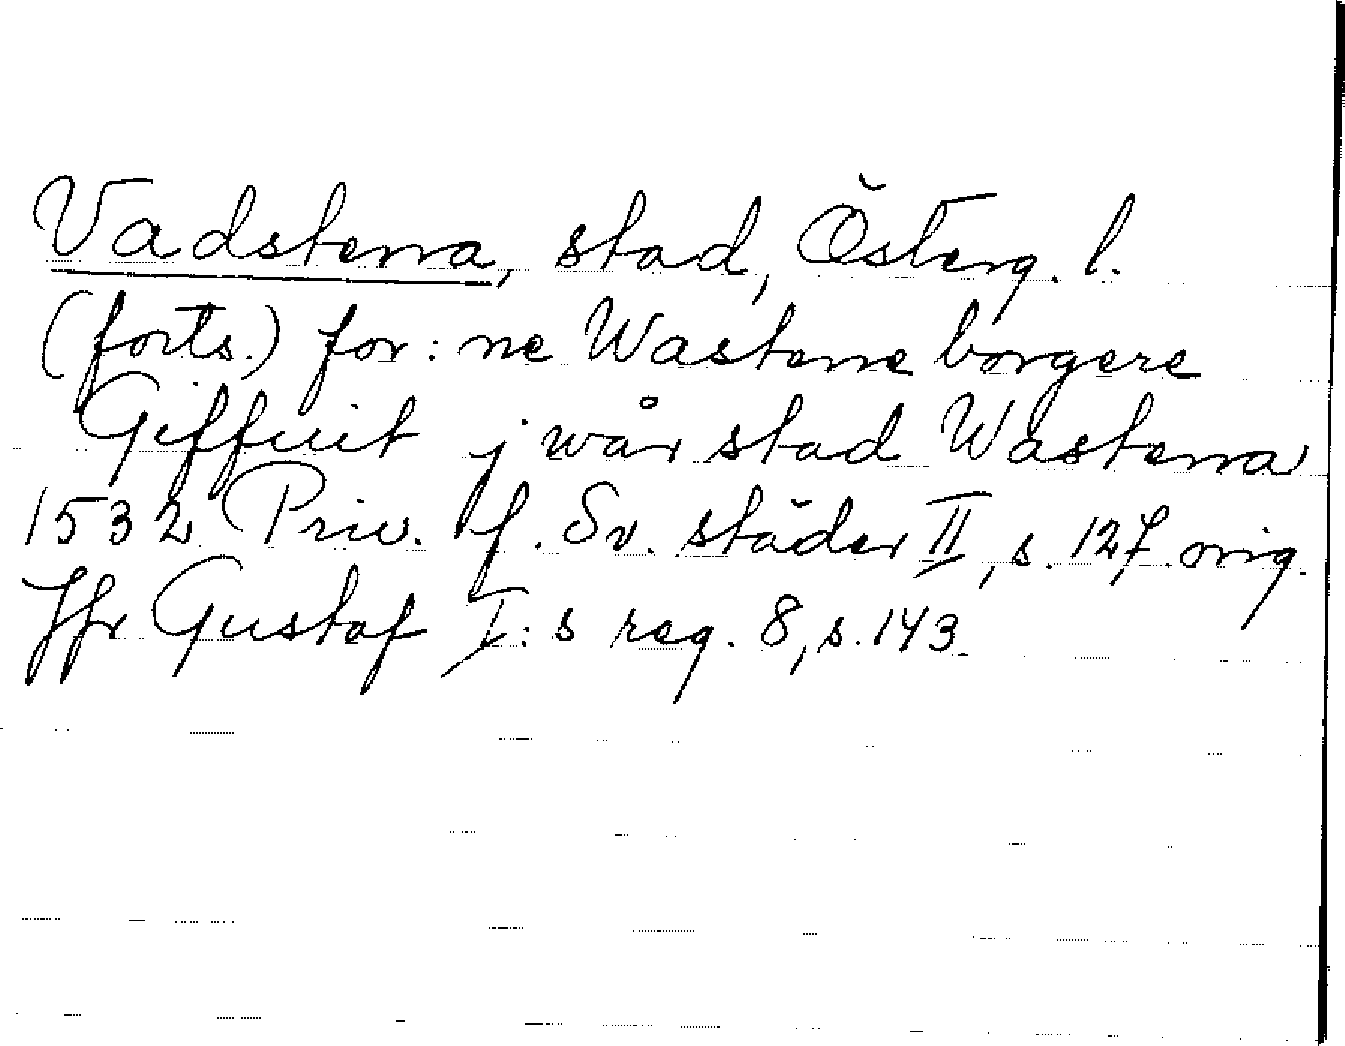 Vadstena, stad, Österg. l.
(forts.) for: ne Wastene borgere
Giffuit j wår stad Wastena
1532 Priv. f. Sv. städer II, s. 127. orig.
Jfr Gustaf I:s reg. 8, s. 143.